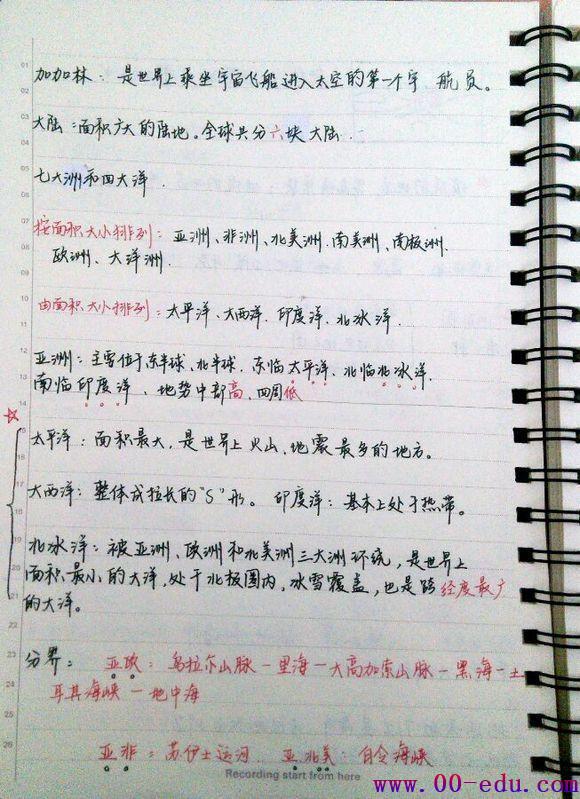 加加林：是世界上乘坐宇宙飞船进入太空的第一个宇 航员。
大陆：面积广大的陆地。全球共分六块大陆．
七大洲和四大洋．
按面积大小排列：亚洲、非洲、北美洲、南美洲、南极洲、
欧洲、大洋洲．
由面积大小排列：太平洋、大西洋、印度洋、北冰洋．
亚洲：主要位于东半球、北半球．东临太平洋、北临北冰洋．
南临印度洋、地势中部高、四周低
太平洋：面积最大，是世界上火山，地震最多的地方。
大西洋：整体成拉长的“S”形。 印度洋：基本上处于热带。
北冰洋：被亚洲、欧洲和北美洲三大洲环绕，是世界上
面积最小的大洋，处于北极圈内，冰雪覆盖，也是跨经度最广
的大洋。
分界： 亚欧：乌拉尔山脉一里海一大高加索山脉一黑海一土
耳其海峡一地中海
亚非：苏伊士运河 亚北美：白令海峡
Recording start from here
www.00-edu.com